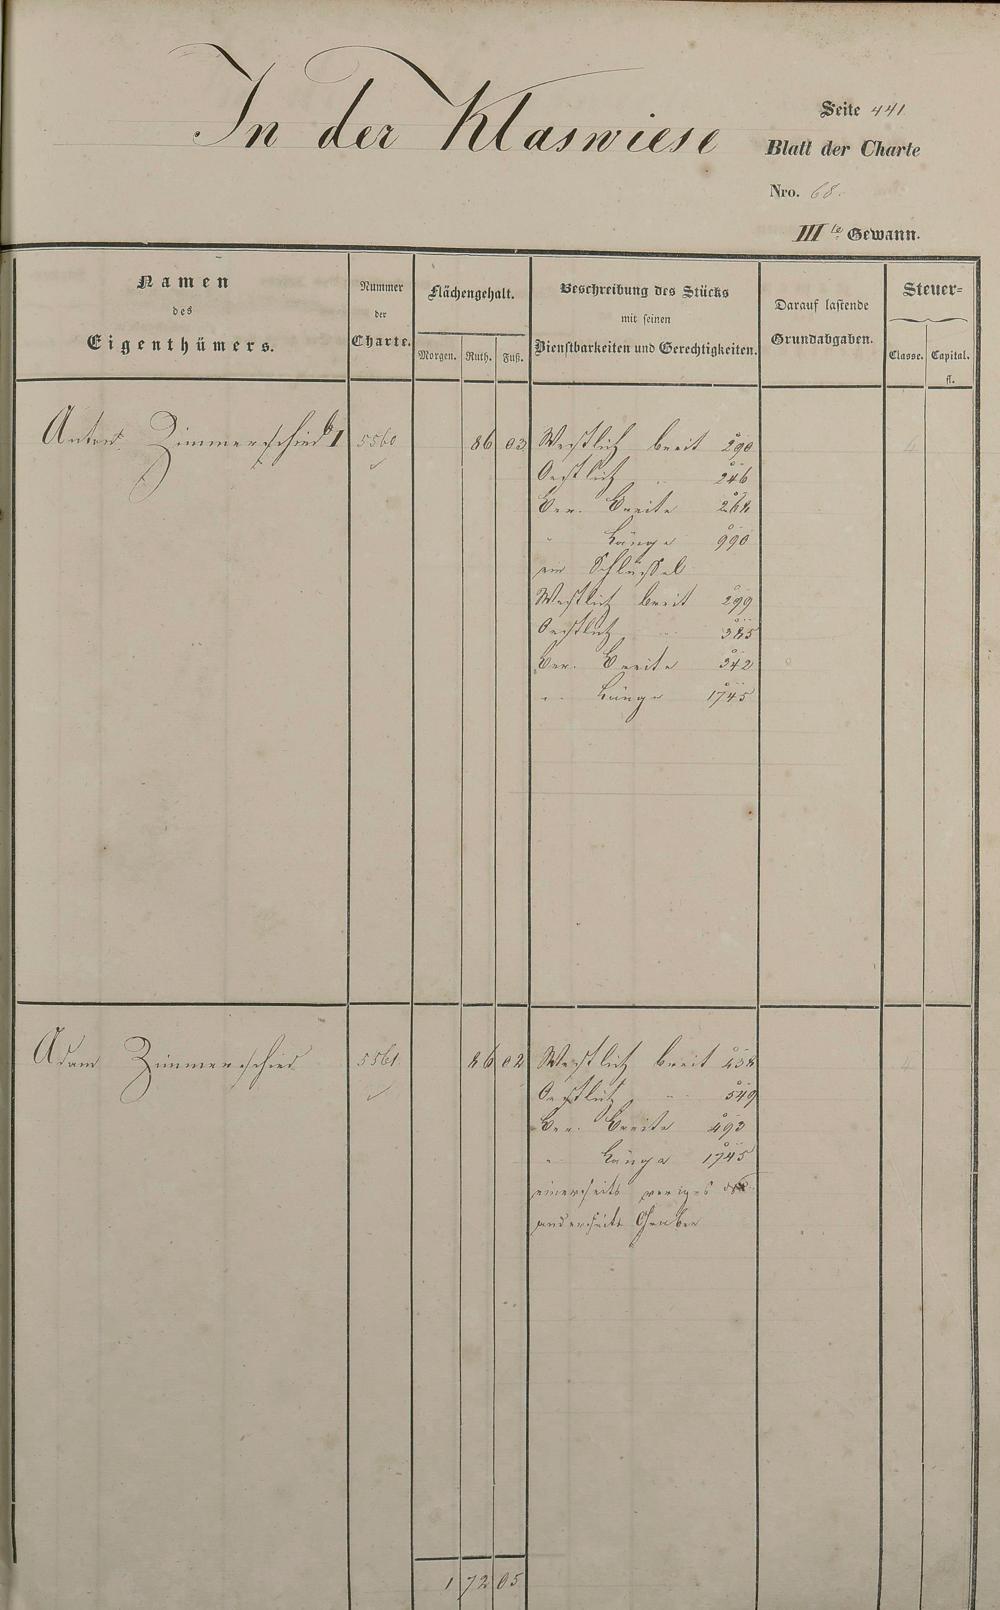 In der Klaswiese
Seite 441
Blatt der Charte
Nro. 68.
III te Gewann.
Namen des Eigenthümers.
Nummer der Charte.
Flächengehalt.
Morgen. Ruth. Fuß.
Beschreibung des Stücks mit seinen Dienstbarkeiten und Gerechtigkeiten.
Darauf lastende Grundabgaben.
Steuer=
Classe. Capital. fl.
Anton Zimmerschied I 5560 86 03 Westlich breit 290 4
Oestlich " 246
Ver. Breite 268
" Länge 990
ein Schlüssel
Westlich breit 299
Oestlich " 385
Ver. Breite 342
" Länge 1745
Adam Zimmerschied 5561 86 02 Westlich breit 438 4
Oestlich " 549
Ver. Breite 493
" Länge 1745
einerseits voriges
anderseits Graben
1 72 05